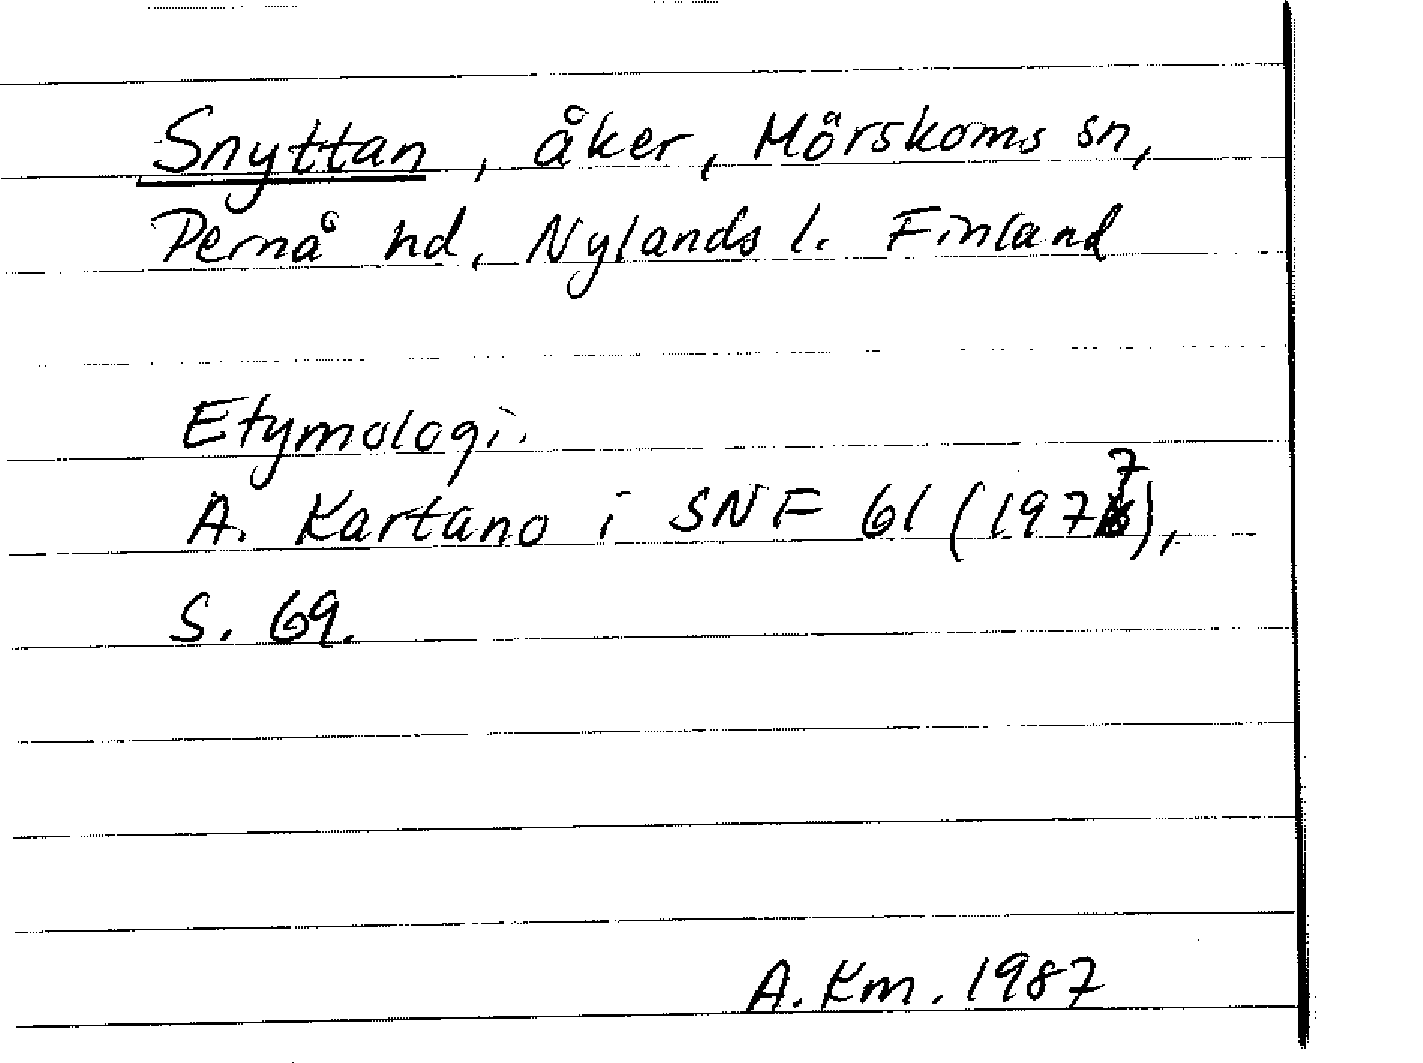 Snyttan, åker, Mörskoms sn,
Pernå hd, Nylands l. Finland
Etymologi.
A. Kartano i SNF 61 (1977),
S. 69.
A. Km. 1987